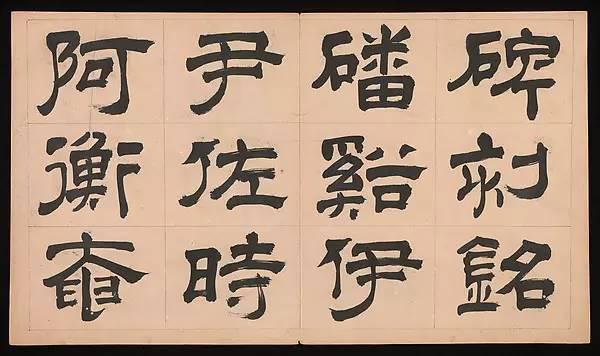 碑刻銘
磻谿伊
尹佐時
阿衡奄